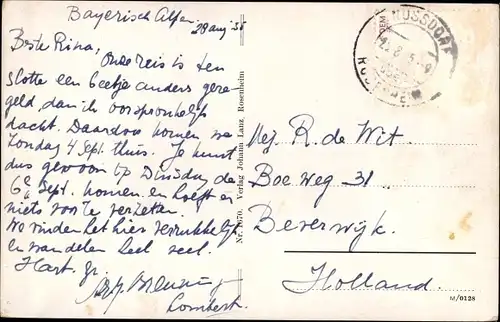 Bayerisch Alpen
28 aug '55
Beste Rina,
Onze reis is ten
slotte een beetje anders gere-
geld, dan ik oorspronkelijk
dacht. Daardoor komen we
Zondag 4 Sept. thuis. Je kunt
dus gewoon op Dinsdag de
6e Sept. komen en hoeft er
niets voor te verzetten.
We vinden het hier verrukkelijk
en wandelen heel veel.
Hart. gr.
Lombert
NUSSDORF
ROSENHEIM
Nr. 1670, Verlag Johann Lanz, Rosenheim
Mej. R. de Wit
Boeweg 31
Beverwijk.
Holland
M/0128